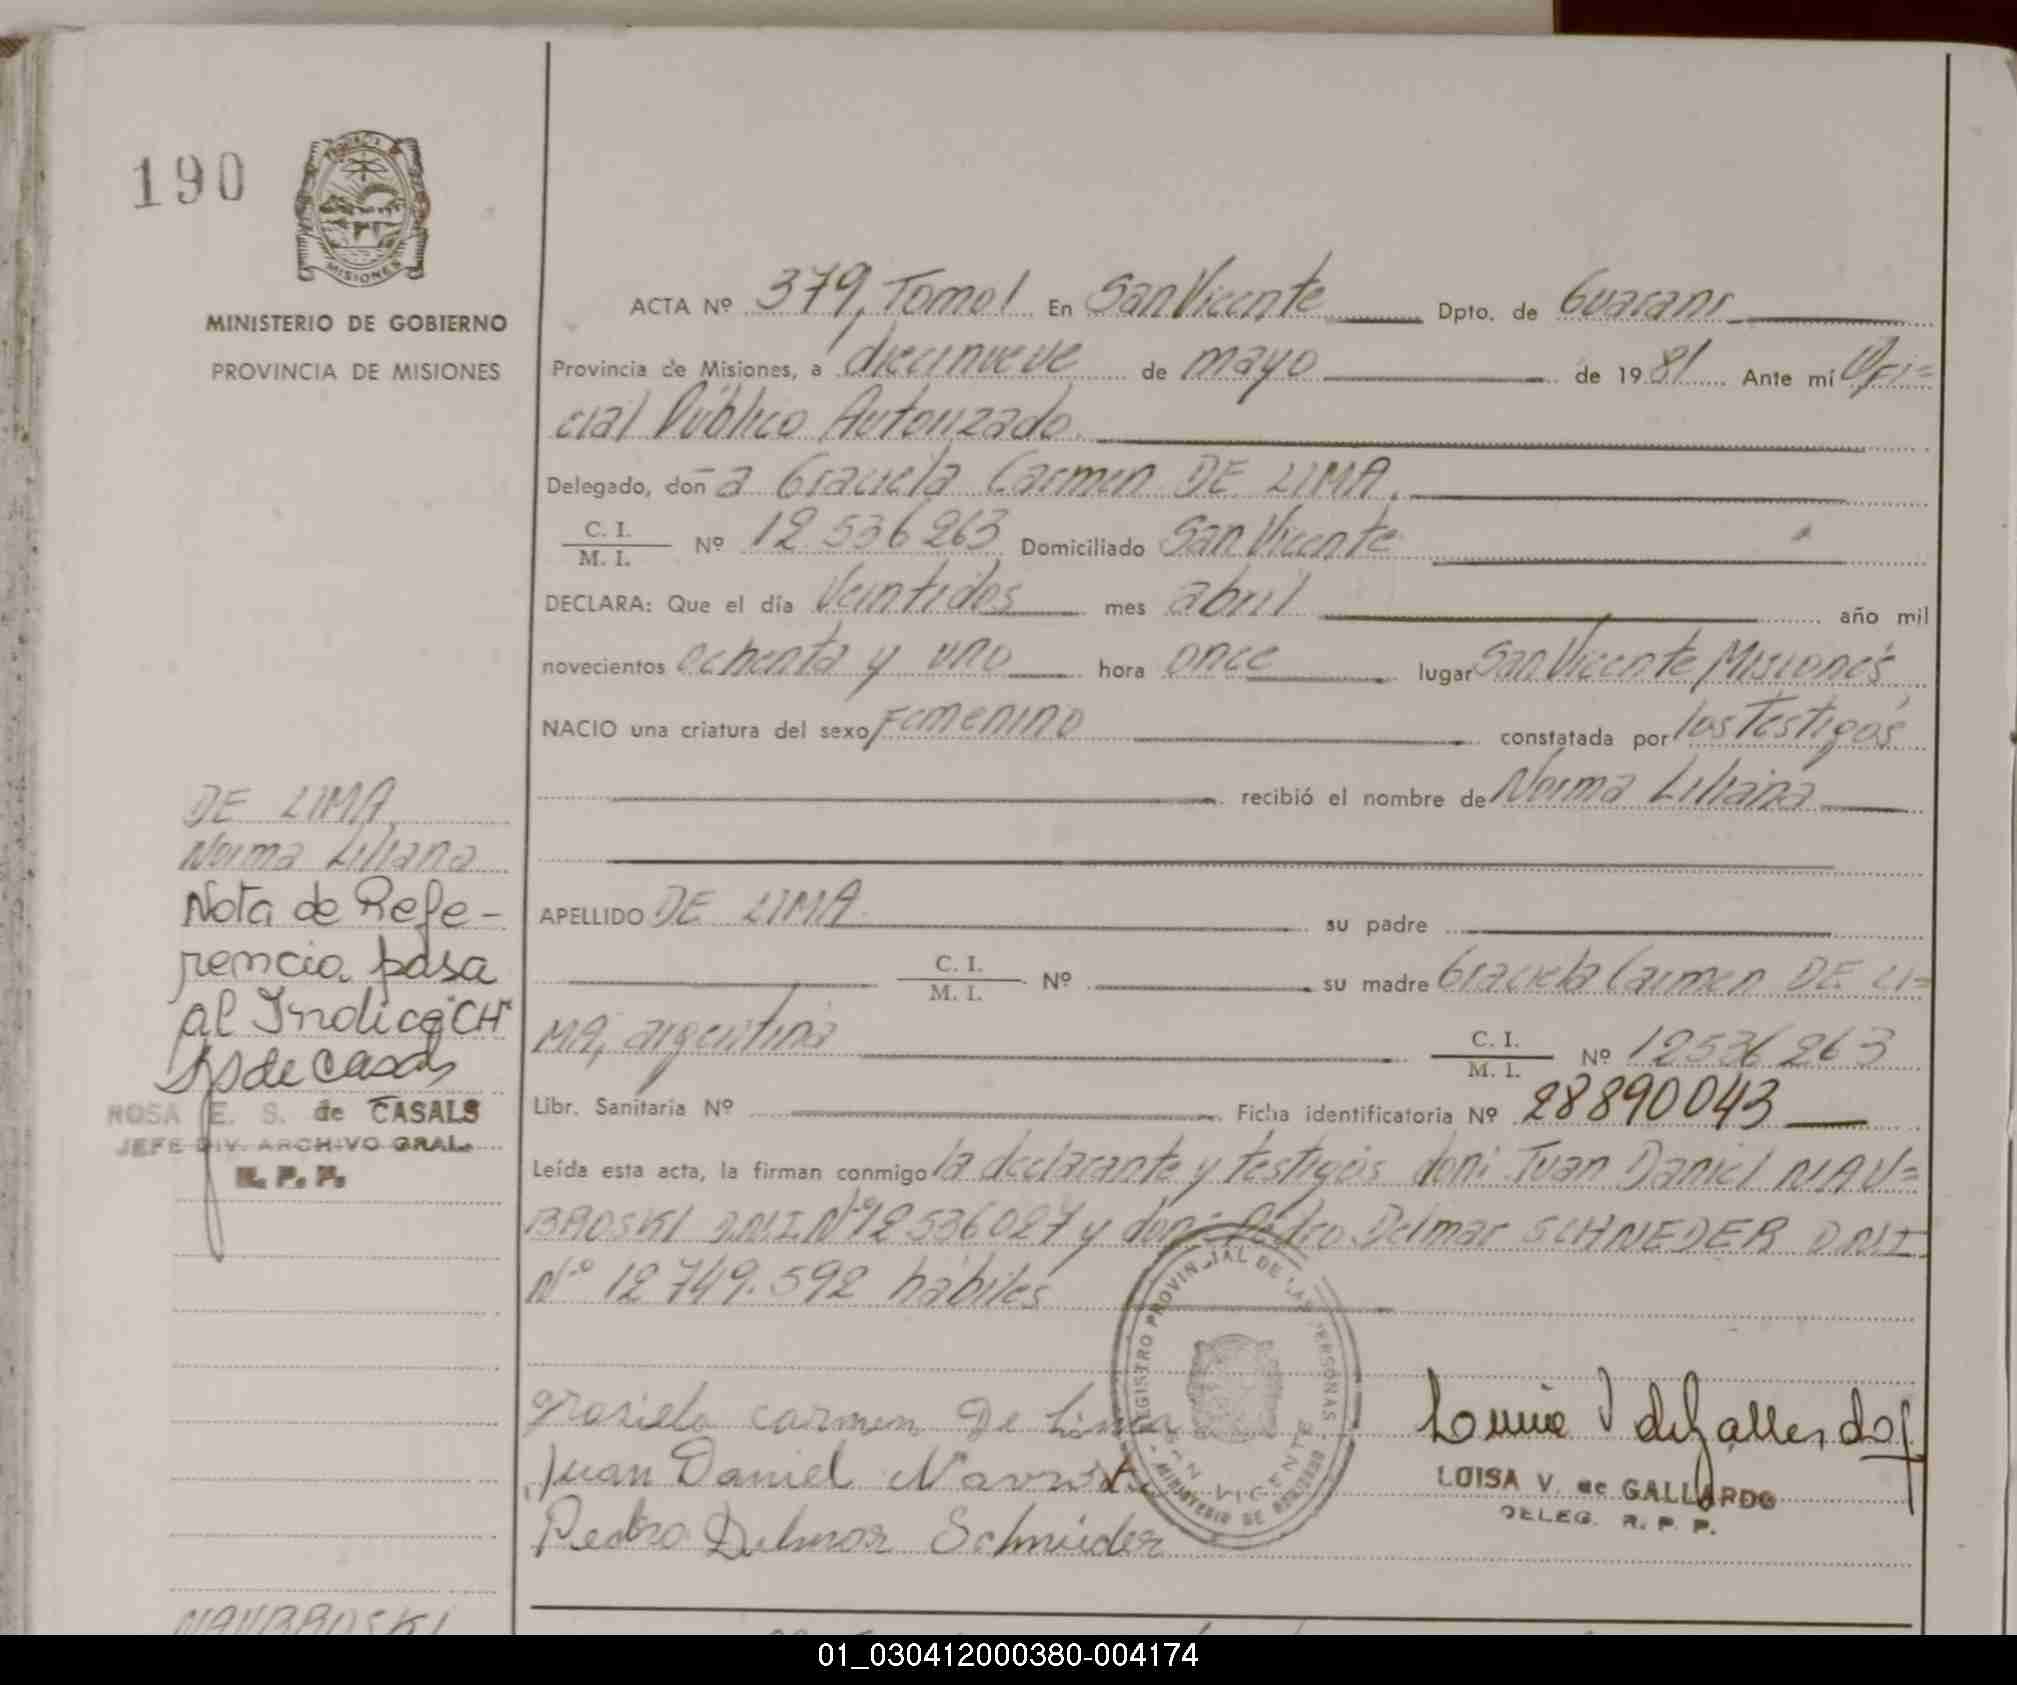 190
MISIONES
MINISTERIO DE GOBIERNO
PROVINCIA DE MISIONES
ACTA Nº 379, Tomo I En San Vicente Dpto. de Guaraní
Provincia de Misiones, a diecinueve de mayo de 1981 Ante mí Ofi=
cial Público Autorizado.
Delegado, don a Graciela Carmen DE LIMA.
C. I.
M. I. Nº 12 536 263 Domiciliado San Vicente
DECLARA: Que el día Veintidos mes abril año mil
novecientos ochenta y uno hora once lugar San Vicente Misiones
NACIO una criatura del sexo Femenino constatada por los Testigos
recibió el nombre de Norma Liliana
APELLIDO DE LIMA su padre
C. I.
M. I. Nº su madre Graciela Carmen DE LI=
MA, argentina C. I.
M. I. Nº 12536263
Libr. Sanitaria Nº Ficha identificatoria Nº 28890043
Leída esta acta, la firman conmigo la declarante y testigos don: Juan Daniel NAV=
BROSKI D.N.I. Nº 12536027 y don: Pedro Delmar SCHNEDER D.N.I
Nº 12 749.592 hábiles
DE LIMA
Norma Liliana
Nota de Refe-
rencia pasa
al Indice "CH"
de Casals
ROSA E. S. de CASALS
JEFE DIV. ARCHIVO GRAL.
R. P. P.
REGISTRO PROVINCIAL DE LAS PERSONAS
SAN VICENTE
MINISTERIO DE GOBIERNO
grasiela carmen De Lima
Juan Daniel
Pedro Delmar Schneider
LUISA V. de GALLARDO
DELEG. R. P. P.
01_030412000380-004174